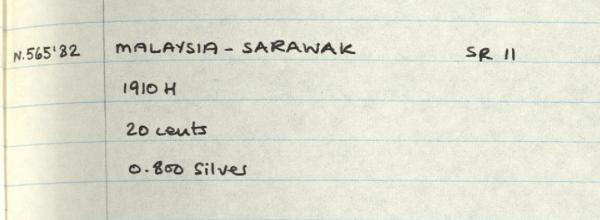 N.565'82 MALAYSIA - SARAWAK SR 11
1910 H
20 cents
0.800 Silver